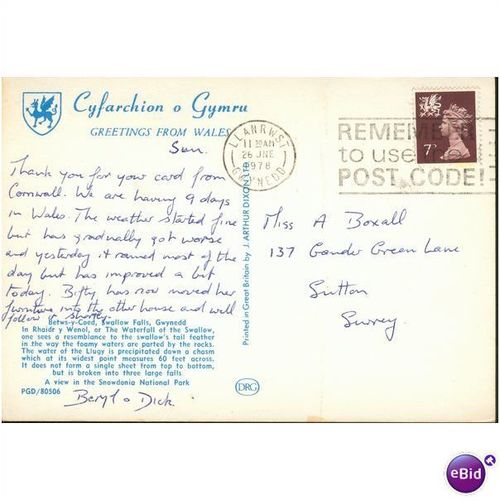 Cyfarchion o Gymru
GREETINGS FROM WALES
Sun.
Thank you for your card from
Cornwall. We are having 9 days
in Wales. The weather started fine
but has gradually got worse
and yesterday it rained most of the
day but has improved a bit
today. has now moved her
furniture into the other house and will
follow it shortly.
Betws-y-Coed, Swallow Falls, Gwynedd
In Rhaidr y Wenol, or The Waterfall of the Swallow,
one sees a resemblance to the swallow's tail feather
in the way the foamy waters are parted by the rocks.
The water of the Llugy is precipitated down a chasm
which at its widest point measures 60 feet across.
It does not form a single sheet from top to bottom,
but is broken into three large falls
A view in the Snowdonia National Park
PGD/80506
Beryl & Dick
Printed in Great Britain by J. ARTHUR DIXON LTD
DRG
LLANRWST
11 30AM
26 JNE
1978
GWYNEDD
REMEMBER
to use
POST CODE!
7
Miss A Boxall
137 Gander Green Lane
Sutton
Surrey.
eBid